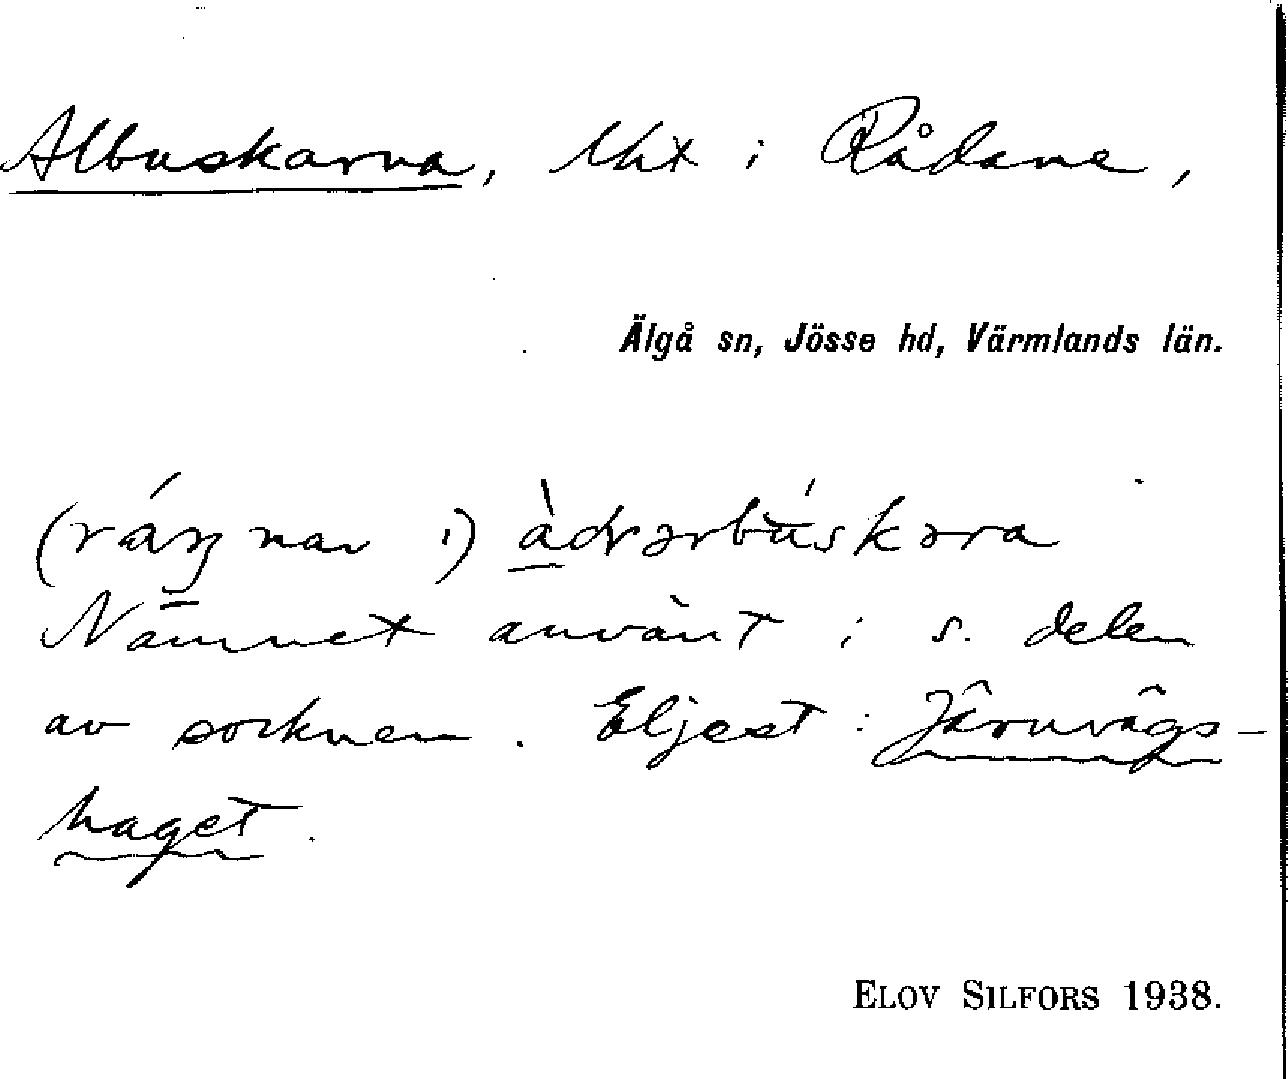 Albuskarna, lht i Rådane,
Älgå sn, Jösse hd, Värmlands län.
Namnet använt i s. delen
av socknen. Eljest: Järnvägs-
haget.
ELOV SILFORS 1938.